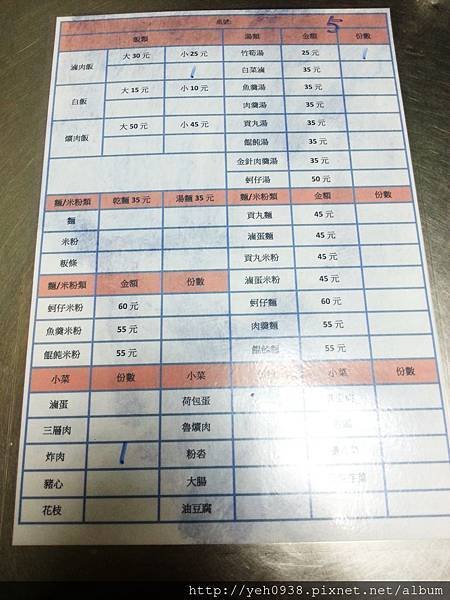 桌號: 5
飯類 湯類 金額 份數
滷肉飯 大 30 元 小 25 元 竹筍湯 25 元 1
1 白菜滷 35 元
白飯 大 15 元 小 10 元 魚羹湯 35 元
肉羹湯 35 元
爌肉飯 大 50 元 小 45 元 貢丸湯 35 元
餛飩湯 35 元
金針肉羹湯 35 元
蚵仔湯 50 元
麵/米粉類 乾麵 35 元 湯麵 35 元 麵/米粉類 金額 份數
麵 貢丸麵 45 元
米粉 滷蛋麵 45 元
粄條 貢丸米粉 45 元
麵/米粉類 金額 份數 滷蛋米粉 45 元
蚵仔米粉 60 元 蚵仔麵 60 元
魚羹米粉 55 元 肉羹麵 55 元
餛飩米粉 55 元 餛飩麵 55 元
小菜 份數 小菜 小菜 份數
滷蛋 荷包蛋
三層肉 魯爌肉
炸肉 1 粉肝
豬心 大腸
花枝 油豆腐
http://yeh0938.pixnet.net/album